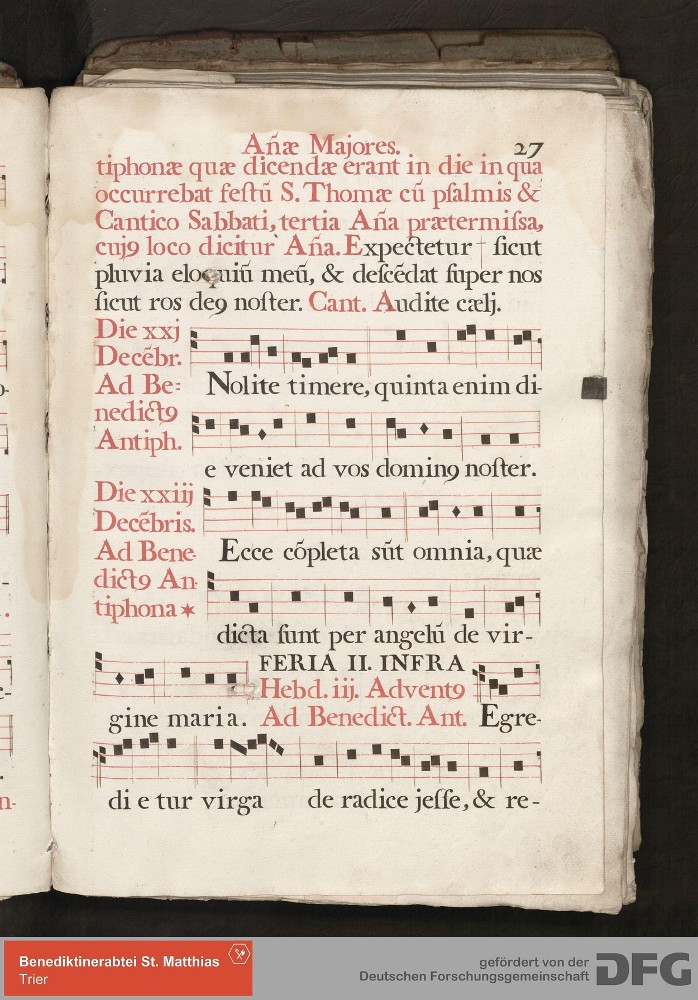 Añæ Majores. 27
tiphonæ quæ dicendæ erant in die in qua
occurrebat feſtũ S. Thomæ cũ pſalmis &
Cantico Sabbati, tertia Aña prætermiſsa,
cujꝯ loco dicitur Aña. Expectetur † ſicut
pluvia eloquiũ meũ, & deſcẽdat ſuper nos
ſicut ros deꝯ noſter. Cant. Audite cælj.
Die xxj
Decẽbr.
Ad Be=
nedictꝯ
Antiph.
Nolite timere, quinta enim di-
e veniet ad vos dominꝯ noſter.
Die xxiij
Decẽbris.
Ad Bene-
dictꝯ An-
tiphona *
Ecce cõpleta sũt omnia, quæ
dicta ſunt per angelũ de vir-
gine maria.
FERIA II. INFRA
Hebd. iij. Adventꝯ
Ad Benedict. Ant. Egre-
di e tur virga de radice jeſſe, & re-
Benediktinerabtei St. Matthias
Trier
gefördert von der
Deutschen Forschungsgemeinschaft
DFG